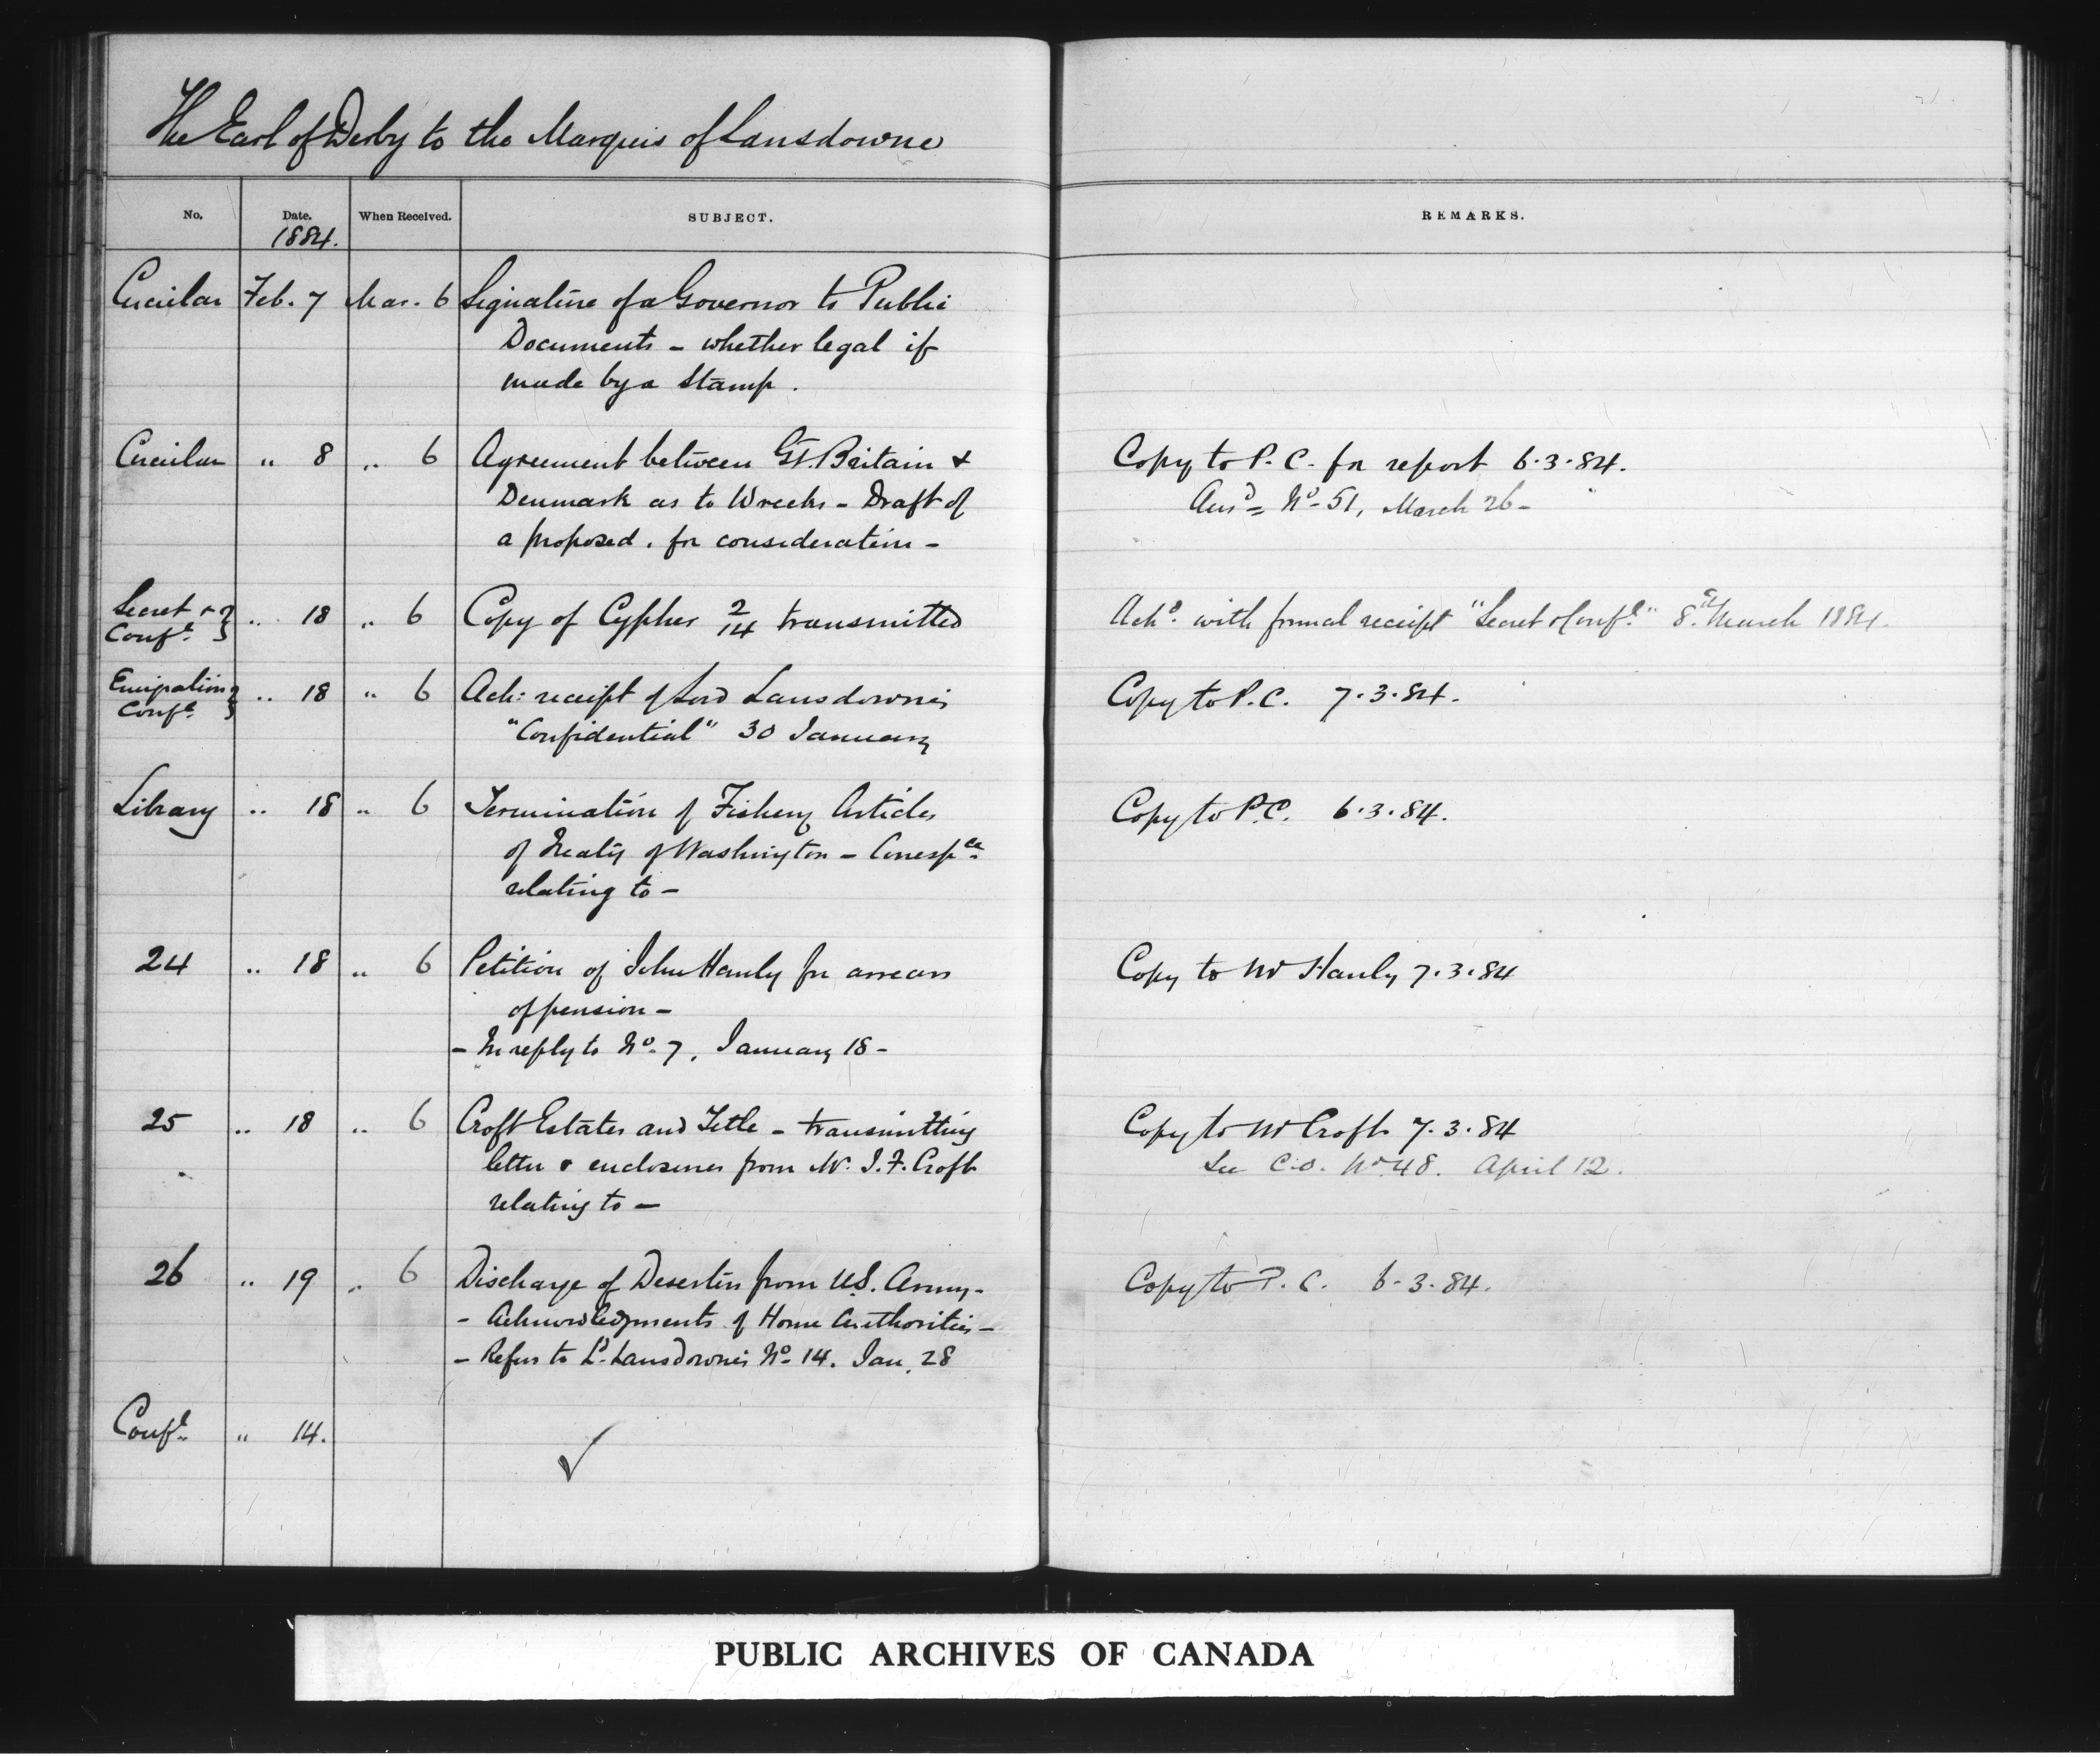 The Earl of Derby to the Marquis of Lansdowne
No. Date. When Received. SUBJECT. REMARKS.
1884.
Circular Feb. 7 Mar. 6 Signature of a Governor to Public
Documents - whether legal if
made by a Stamp.
Circular " 8 " 6 Agreement between Gt. Britain & Copy to P. C. for report 6.3.84.
Denmark as to Wrecks - Draft of Ansd = No. 51, March 26 -
a proposed, for consideration -
Secret & Confl. } " 18 " 6 Copy of Cypher 2/14 transmitted Ackd. with formal receipt "Secret & Confl." 8th March 1884.
Emigration Confl. } " 18 " 6 Ack: receipt of Lord Lansdowne's Copy to P. C. 7.3.84.
"Confidential" 30 January
Library " 18 " 6 Termination of Fishery Articles Copy to P.C. 6.3.84.
of Treaty of Washington - Correspce.
relating to -
24 " 18 " 6 Petition of John Hanly for arrears Copy to Mr Hanly 7.3.84
of pension -
- In reply to No. 7, January 18 -
25 " 18 " 6 Croft Estates and Title - transmitting Copy to Mr Croft 7.3.84
letter & enclosures from Mr. J. F. Croft See C.O. No. 48. April 12.
relating to -
26 " 19 " 6 Discharge of Deserters from U.S. Army - Copy to P. C. 6.3.84.
- Acknowledgments of Home Authorities -
- Refers to Ld. Lansdowne's No. 14. Jan. 28
Confl. " 14.
PUBLIC ARCHIVES OF CANADA